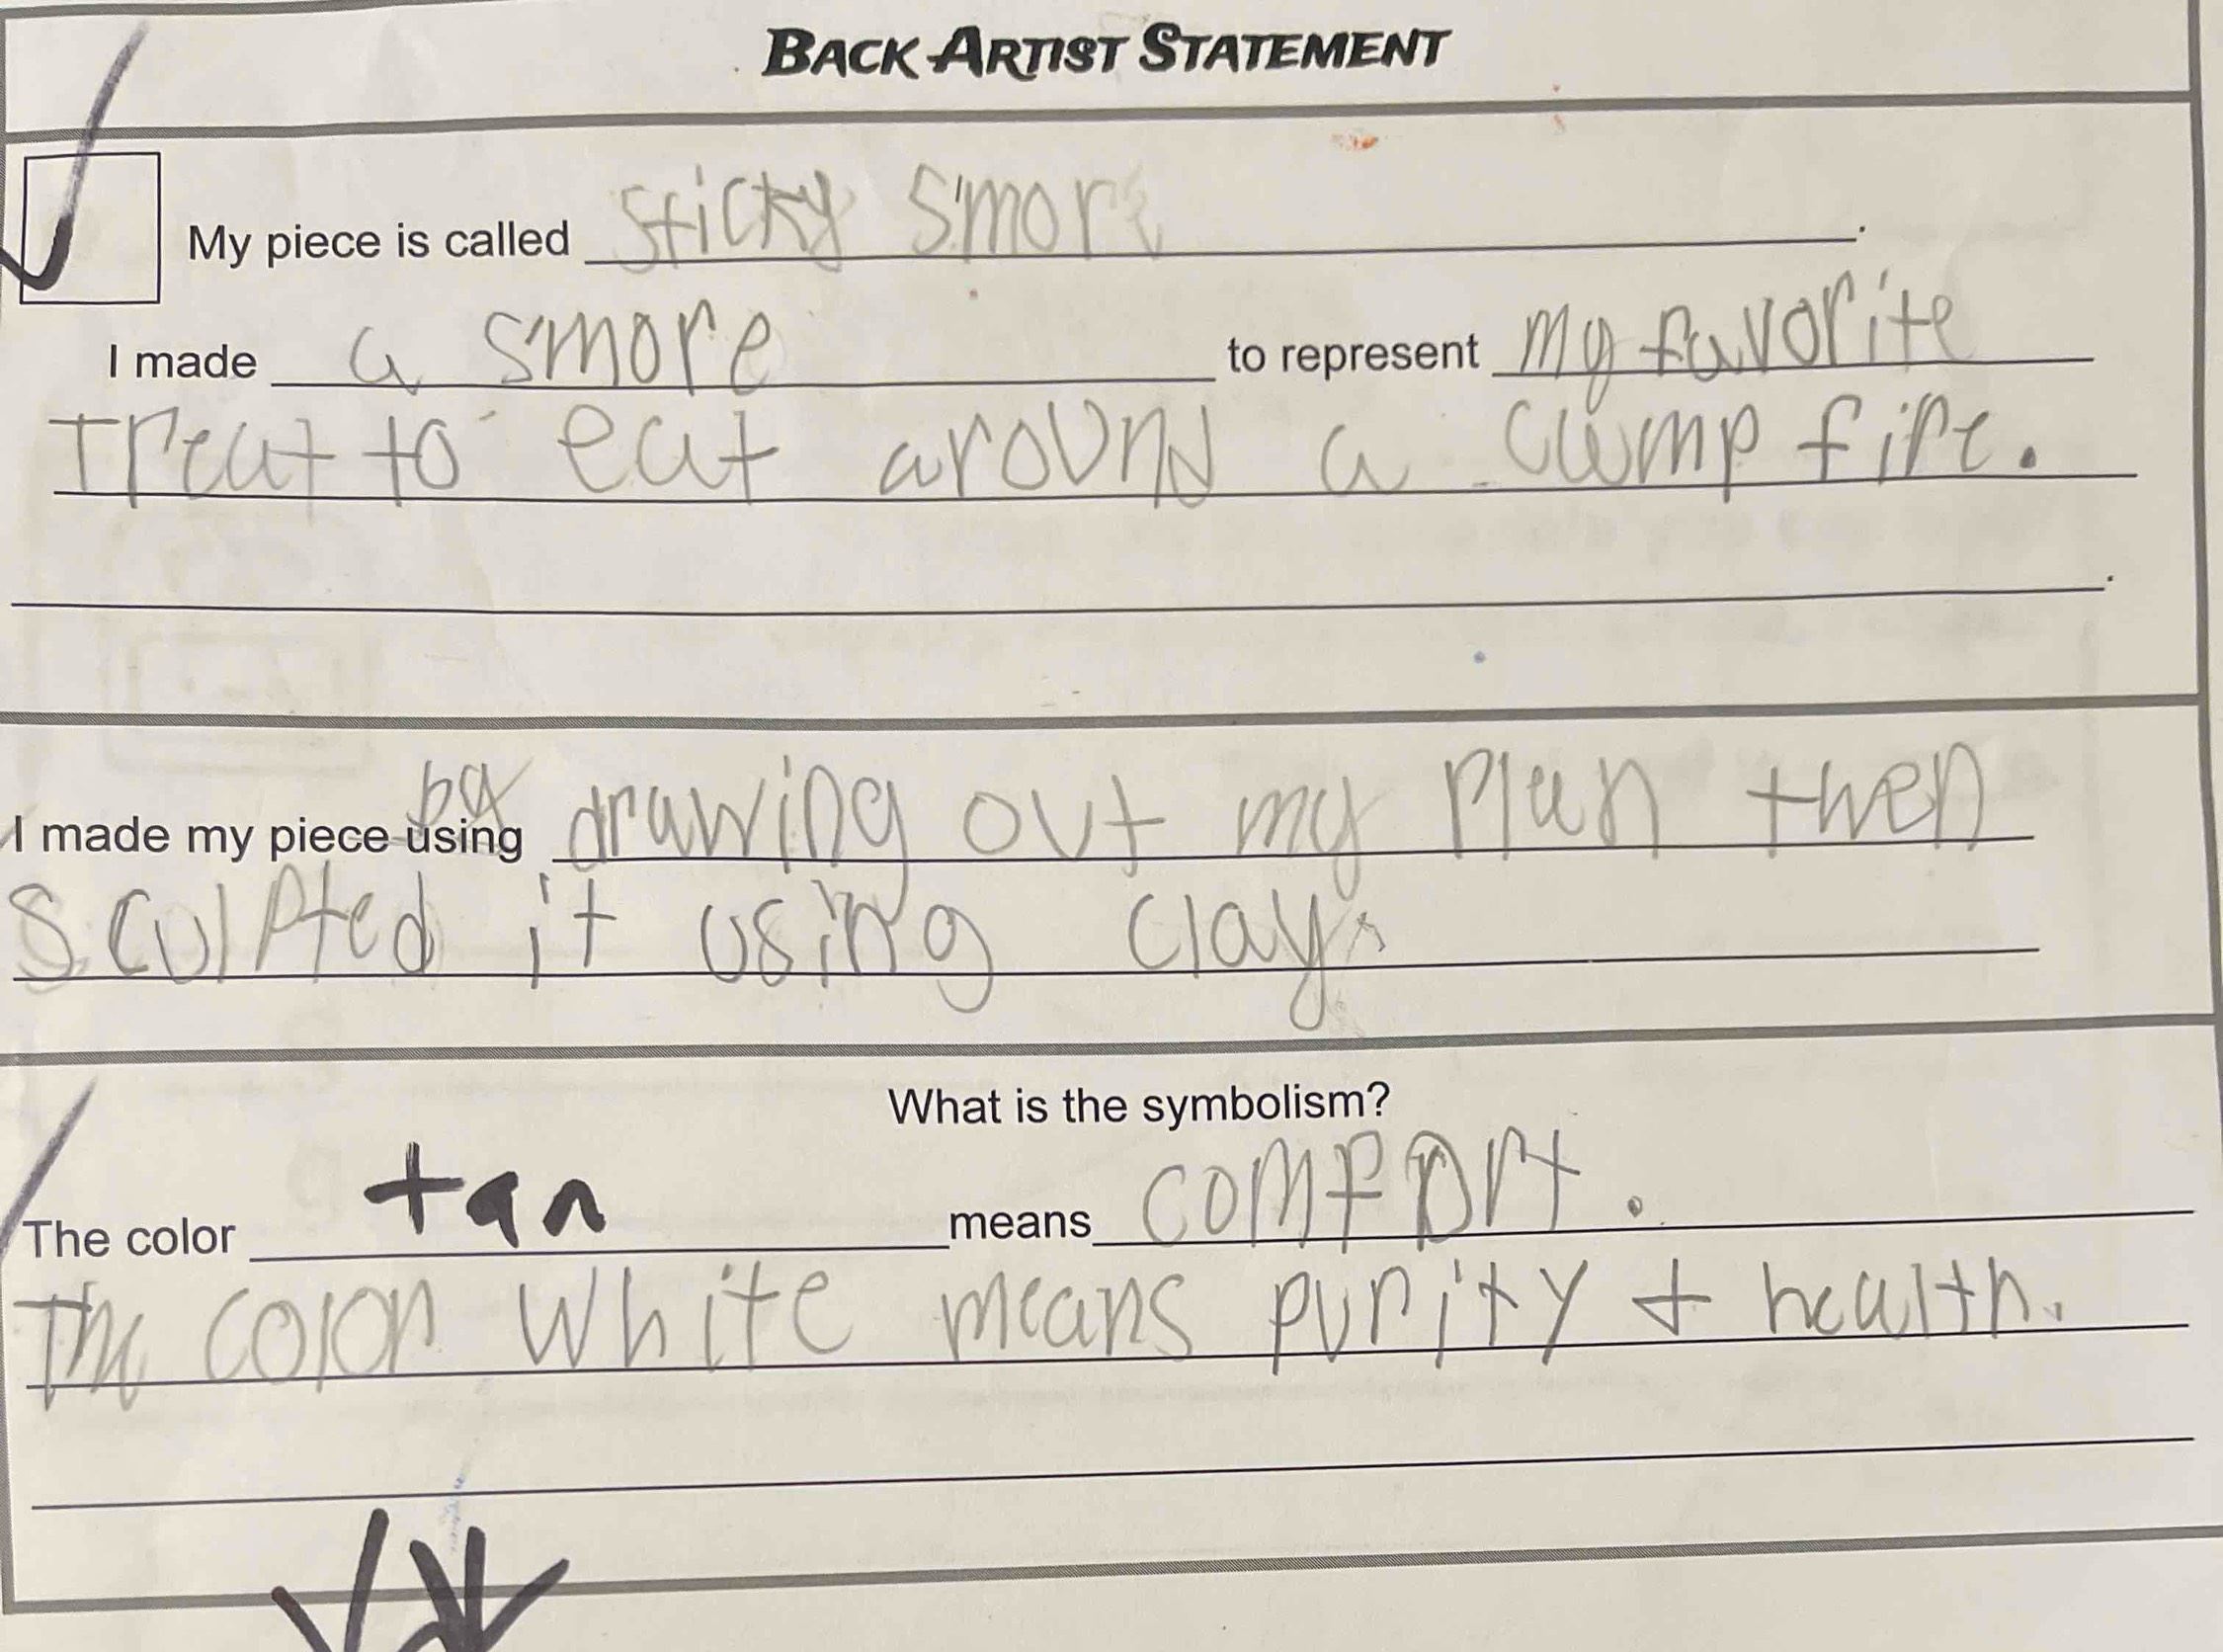 BACK ARTIST STATEMENT
My piece is called Sticky S'more.
I made a s'more to represent my favorite
Treat to eat around a camp fire.
by
I made my piece using drawing out my Plan then
Sculpted it using clay.
What is the symbolism?
The color tan means comfort.
The color white means purity + health.